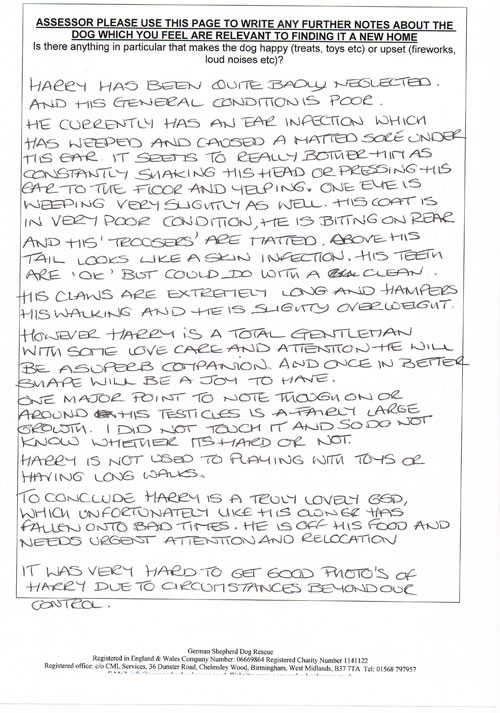 ASSESSOR PLEASE USE THIS PAGE TO WRITE ANY FURTHER NOTES ABOUT THE
DOG WHICH YOU FEEL ARE RELEVANT TO FINDING IT A NEW HOME
Is there anything in particular that makes the dog happy (treats, toys etc) or upset (fireworks,
loud noises etc)?
HARRY HAS BEEN QUITE BADLY NEGLECTED.
AND HIS GENERAL CONDITION IS POOR.
HE CURRENTLY HAS AN EAR INFECTION WHICH
HAS WEEPED AND CAUSED A MATTED SORE UNDER
HIS EAR. IT SEEMS TO REALLY BOTHER HIM AS
CONSTANTLY SHAKING HIS HEAD OR PRESSING HIS
EAR TO THE FLOOR AND YELPING. ONE EYE IS
WEEPING VERY SLIGHTLY AS WELL. HIS COAT IS
IN VERY POOR CONDITION, HE IS BITING ON REAR
AND HIS 'TROOSERS' ARE MATTED. ABOVE HIS
TAIL LOOKS LIKE A SKIN INFECTION. HIS TEETH
ARE 'OK' BUT COULD DO WITH A CLEAN.
HIS CLAWS ARE EXTREMELY LONG AND HAMPERS
HIS WALKING AND HE IS SLIGHTLY OVERWEIGHT.
HOWEVER HARRY IS A TOTAL GENTLEMAN
WITH SOME LOVE CARE AND ATTENTION HE WILL
BE A SUPERB COMPANION. AND ONCE IN BETTER
SHAPE WILL BE A JOY TO HAVE.
ONE MAJOR POINT TO NOTE THOUGH ON OR
AROUND HIS TESTICLES IS A FAIRLY LARGE
GROWTH. I DID NOT TOUCH IT AND SO DO NOT
KNOW WHETHER ITS HARD OR NOT.
HARRY IS NOT USED TO PLAYING WITH TOYS OR
HAVING LONG WALKS.
TO CONCLUDE HARRY IS A TRULY LOVELY GSD,
WHICH UNFORTUNATELY LIKE HIS OWNER HAS
FALLEN ONTO BAD TIMES. HE IS OFF HIS FOOD AND
NEEDS URGENT ATTENTION AND RELOCATION
IT WAS VERY HARD TO GET GOOD PHOTO'S OF
HARRY DUE TO CIRCUMSTANCES BEYOND OUR
CONTROL.
German Shepherd Dog Rescue
Registered in England & Wales Company Number: 06669864 Registered Charity Number 1141122
Registered office: c/o CML Services, 36 Dunster Road, Chelmsley Wood, Birmingham, West Midlands, B37 7TA Tel: 01568 797957